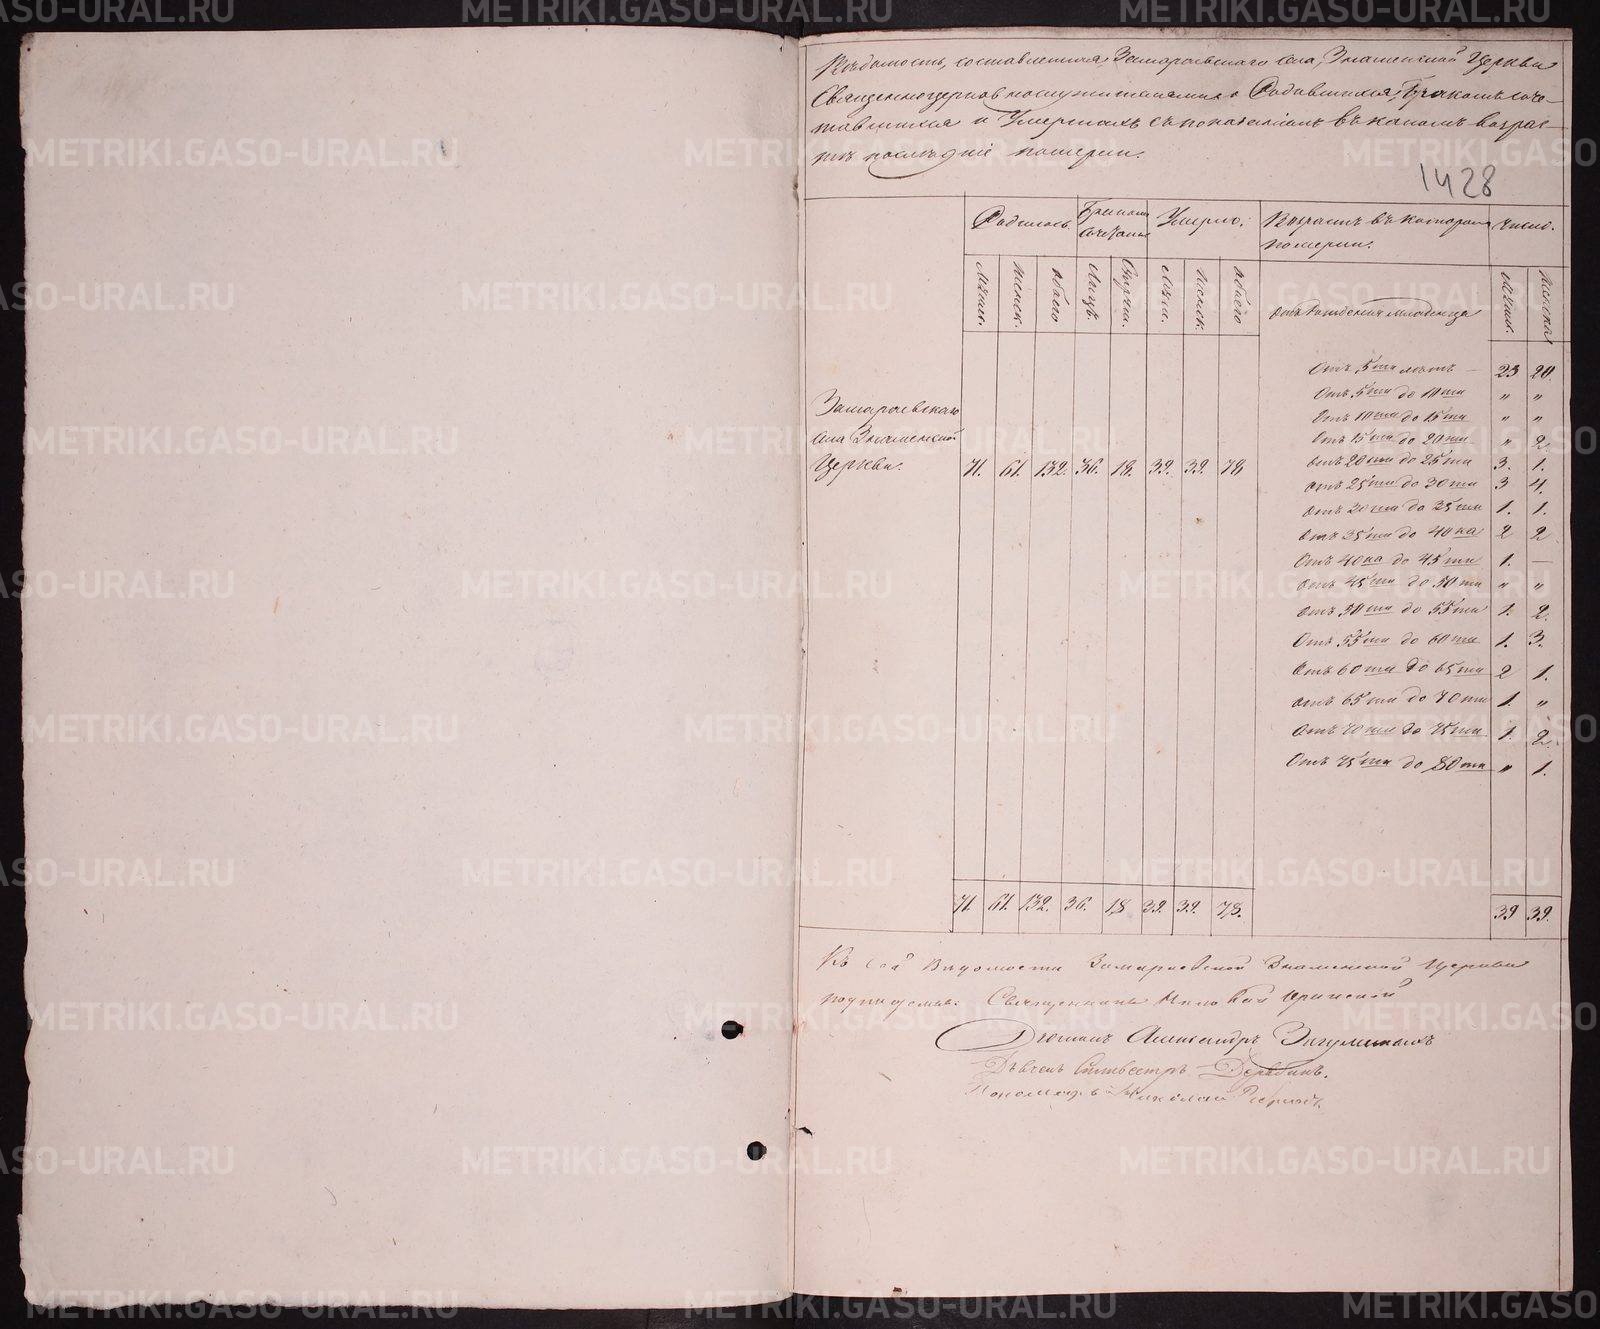 Ведомость, составленная Замараевскаго села, Знаменской Церкви
Священноцерковнослужителями о Родившихся, Бракомъ соче-
тавшихся и Умершихъ съ показанiемъ въ какомъ возрас-
тѣ послѣднiе померли.
1428
Родилось. Бракомъ сочетались Умерло: Возрастъ въ которомъ померли. Число.
Мужск. Женск. обоего Лицъ. Супруж. Муж. Женск. обоего отъ Рожденiя младенца Мужск. Женска
Отъ 5ти лѣтъ — 23 20
Отъ 5ти до 10ти " "
Отъ 10ти до 15ти " "
Отъ 15ти до 20ти " 2.
Замараевскаго
села Знаменской
Церкви. 71. 61. 132. 36. 18. 39. 39. 78
отъ 20ти до 25ти 3. 1.
отъ 25ти до 30ти 3 4.
отъ 30ти до 35ти 1. 1.
отъ 35ти до 40ка 2 2
Отъ 40ка до 45ти 1. —
отъ 45ти до 50ти " "
отъ 50ти до 55ти 1. 2.
Отъ 55ти до 60ти 1. 3.
Отъ 60ти до 65ти 2 1.
отъ 65ти до 70ти 1. "
отъ 70ти до 75ти 1. 2.
Отъ 75ти до 80ти " 1.
71. 61. 132. 36. 18 39. 39. 78. 39 39.
Къ сей Вѣдомости Замараевской Знаменской Церкви
подписуемся: Священникъ
Дiаконъ Александръ
Дьячекъ Сильвестръ Дерябинъ.
Пономарь Николай
METRIKI.GASO-URAL.RU